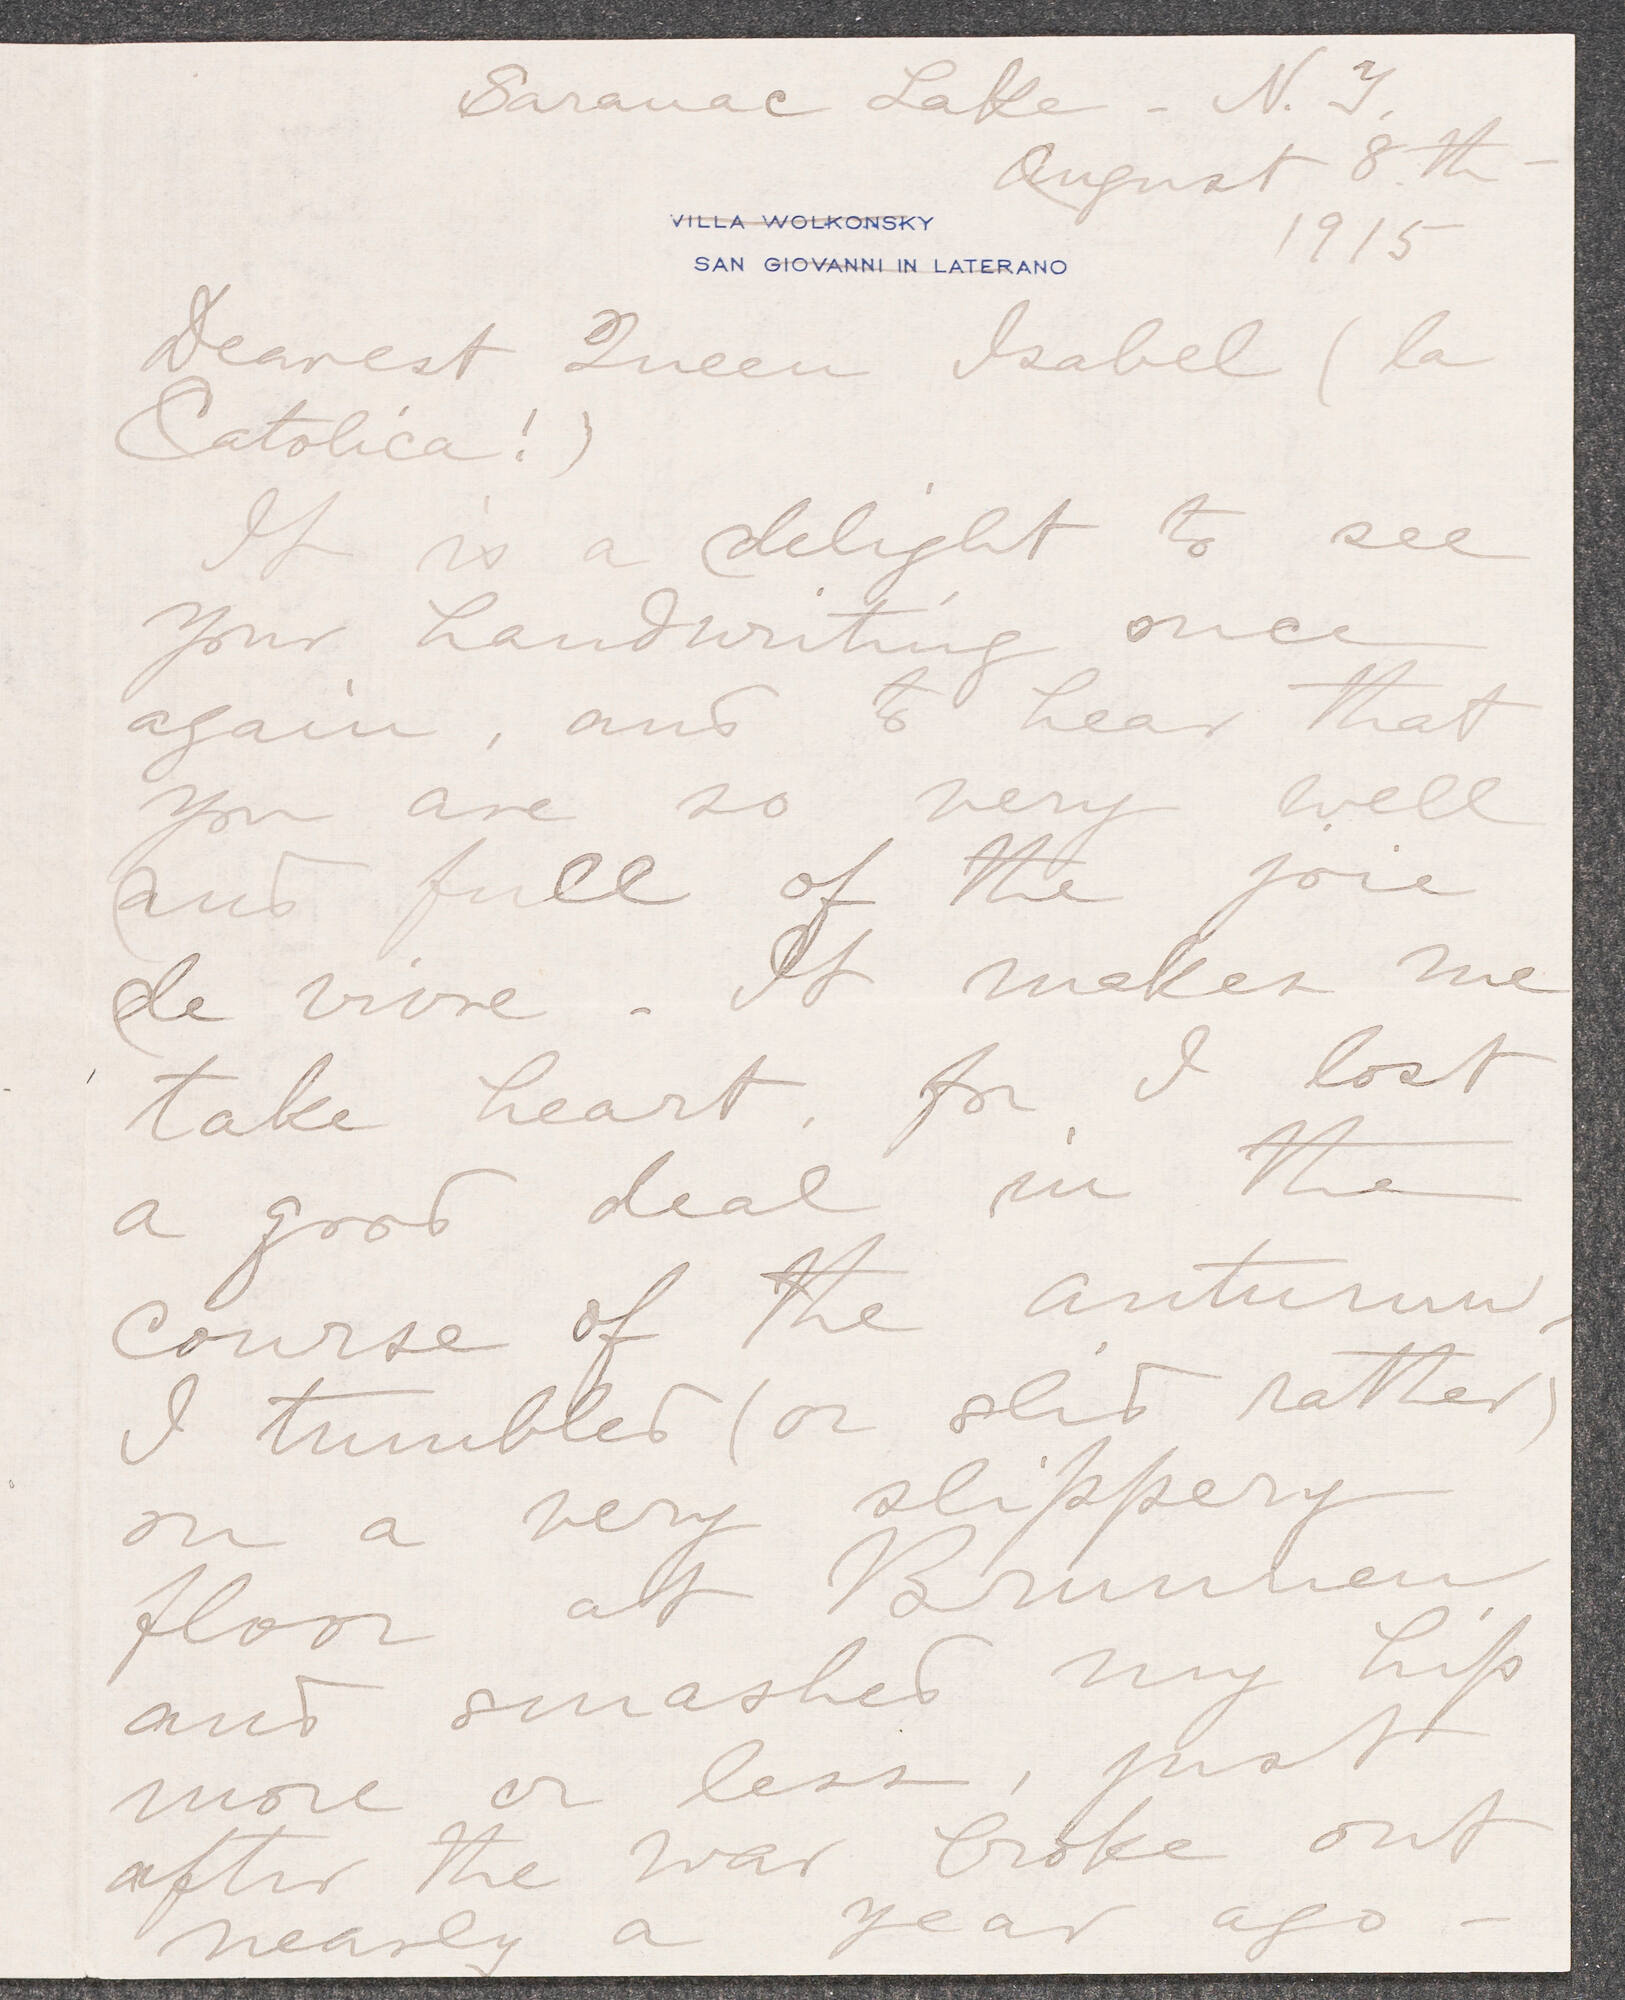 Saranac Lake - N.Y.
August 8th -
1915
VILLA WOLKONSKY
SAN GIOVANNI IN LATERANO
Dearest Queen Isabel (la
Catolica!)
It is a delight to see
your handwriting once
again, and to hear that
you are so very well
and full of the joie
de vivre - It makes me
take heart, for I lost
a good deal in the
course of the autumn,
I tumbled (or slid rather)
on a very slippery
floor at Brunnen
and smashed my hip
more or less, just
after the war broke out
nearly a year ago -